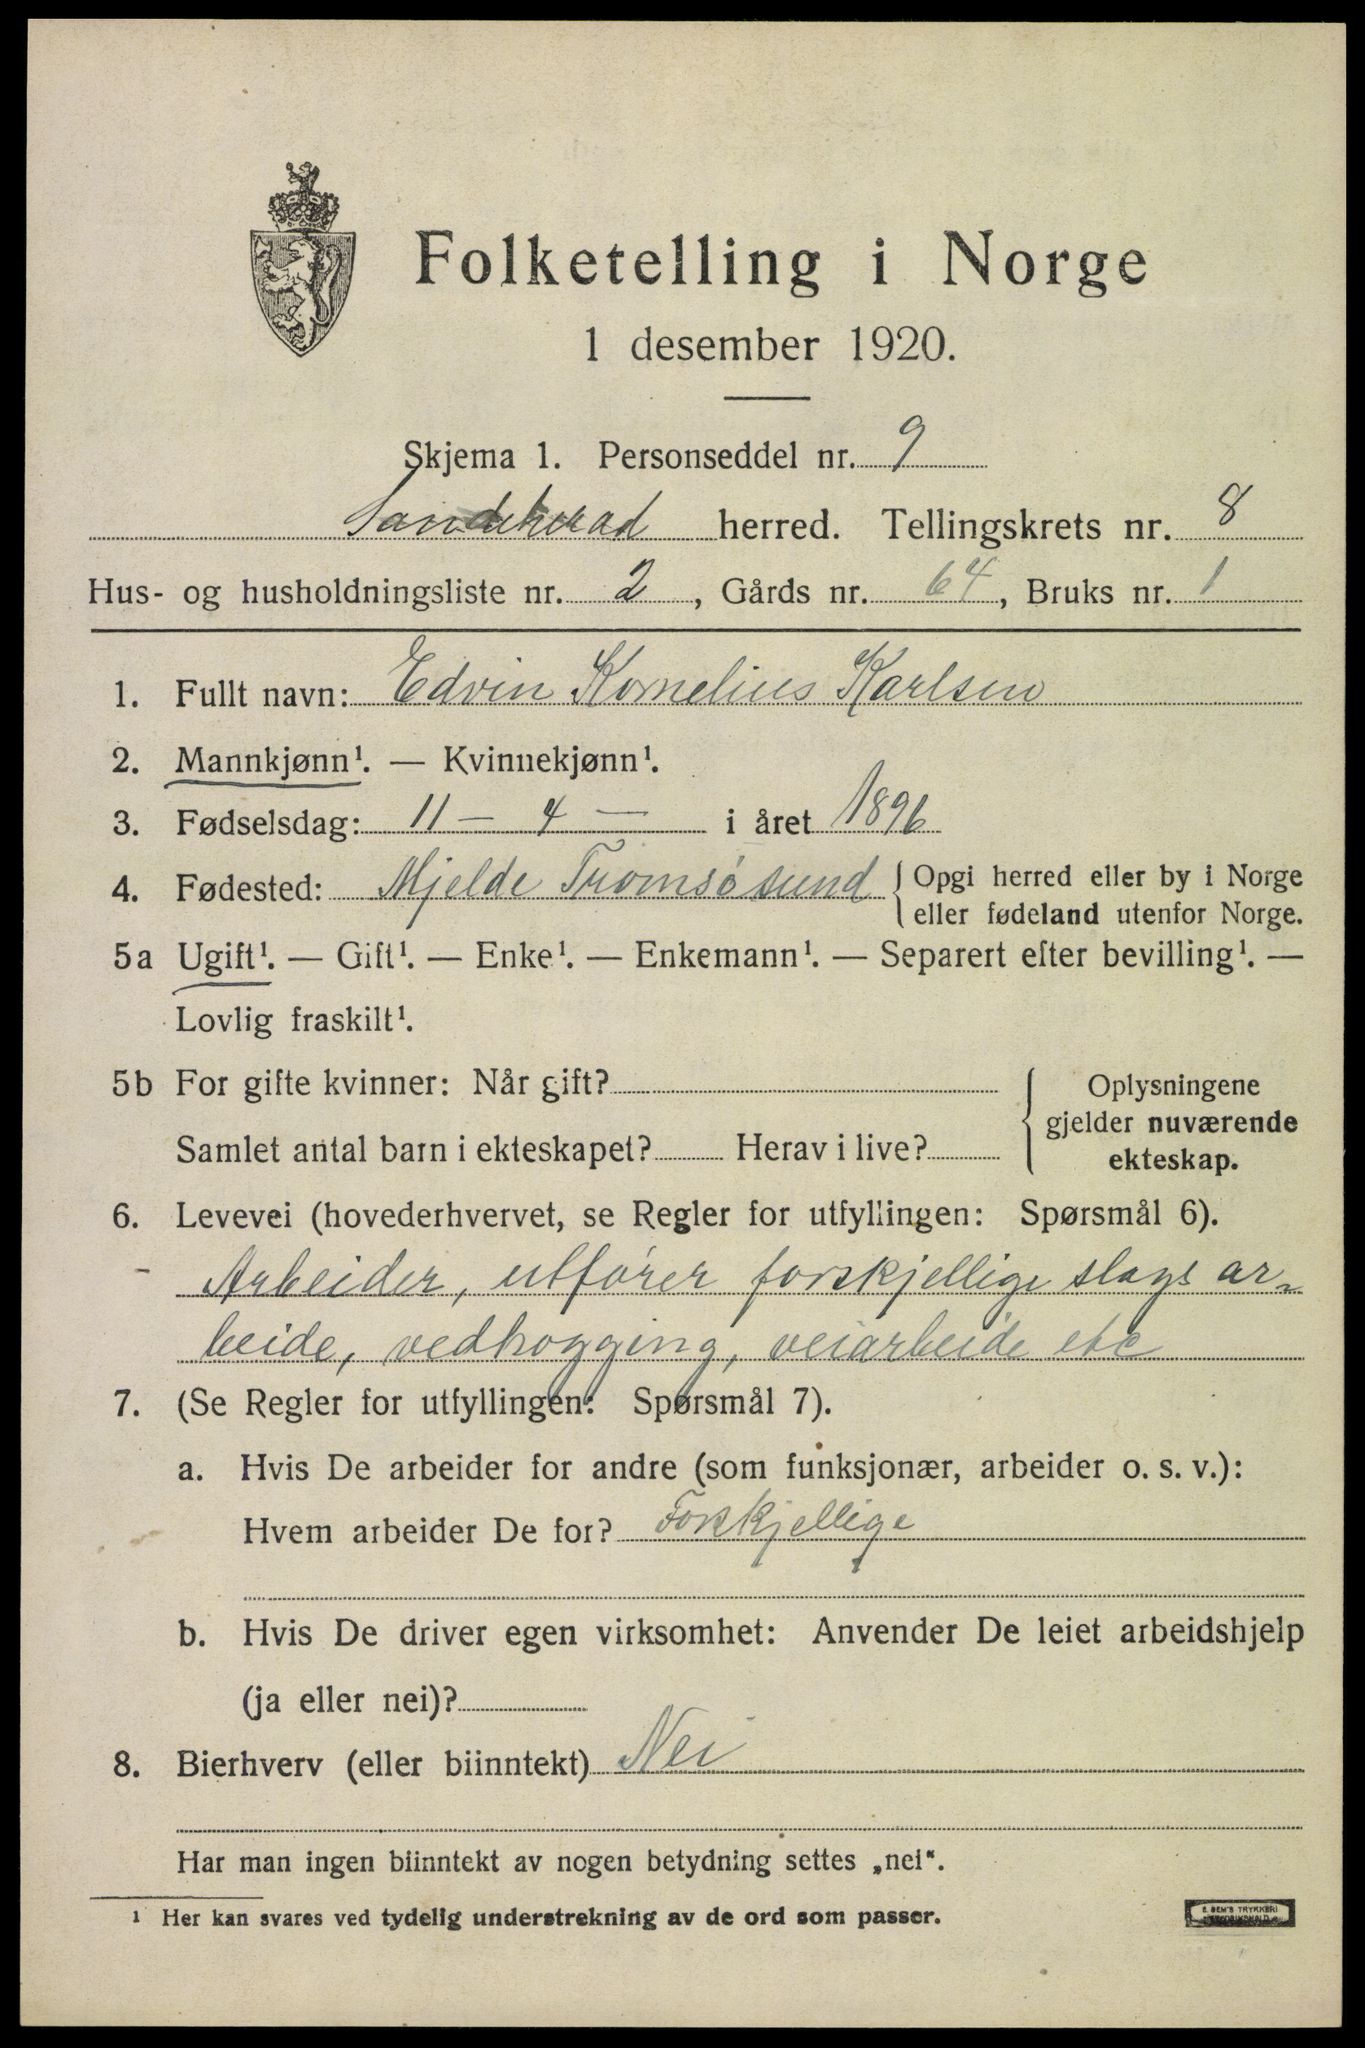 Folketelling i Norge
1 desember 1920.
Skjema 1. Personseddel nr. 9
Sandeherad herred. Tellingskrets nr. 8
Hus- og husholdningsliste nr. 2, Gårds nr. 64, Bruks nr. 1
1. Fullt navn: Edvin Kornelius Karlsen
2. Mannkjønn¹. — Kvinnekjønn¹.
3. Fødselsdag: 11 — 4 — i året 1896
4. Fødested: Mjelde Tromsøsund { Opgi herred eller by i Norge
eller fødeland utenfor Norge.
5a Ugift¹. — Gift¹. — Enke¹. — Enkemann¹. — Separert efter bevilling¹. —
Lovlig fraskilt¹.
5b For gifte kvinner: Når gift?
Samlet antal barn i ekteskapet? Herav i live?
Oplysningene
gjelder nuværende
ekteskap.
6. Levevei (hovederhvervet, se Regler for utfyllingen: Spørsmål 6).
Arbeider, utfører forskjellige slags ar-
beide, vedhogging, veiarbeide etc
7. (Se Regler for utfyllingen: Spørsmål 7).
a. Hvis De arbeider for andre (som funksjonær, arbeider o. s. v.):
Hvem arbeider De for? Forskjellige
b. Hvis De driver egen virksomhet: Anvender De leiet arbeidshjelp
(ja eller nei)?
8. Bierhverv (eller biinntekt) Nei
Har man ingen biinntekt av nogen betydning settes „nei“.
¹ Her kan svares ved tydelig understrekning av de ord som passer.
E. SEM'S TRYKKERI